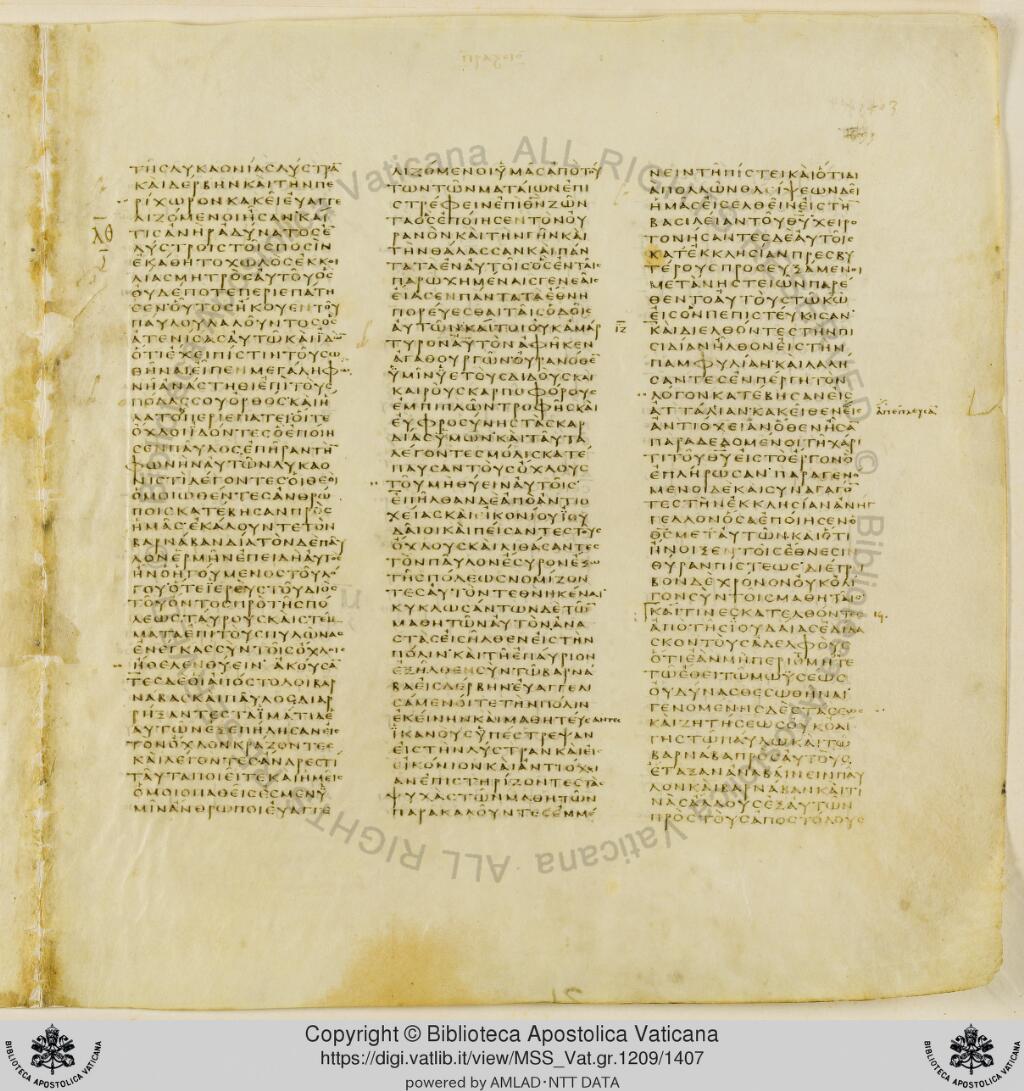 ΤΗΣ ΛΥΚΑΟΝΙΑΣ ΛΥΣΤΡΑ̅
ΚΑΙ ΔΕΡΒΗΝ ΚΑΙ ΤΗΝ ΠΕ
ΡΙΧΩΡΟΝ ΚΑΚΕΙ ΕΥΑΓΓΕ
ΛΙΖΟΜΕΝΟΙ ΗΣΑΝ ΚΑΙ
ΤΙΣ ΑΝΗΡ ΑΔΥΝΑΤΟΣ Ε̅
ΛΥΣΤΡΟΙΣ ΤΟΙΣ ΠΟΣΙΝ
ΕΚΑΘΗΤΟ ΧΩΛΟΣ ΕΚ ΚΟΙ
ΛΙΑΣ ΜΗΤΡΟΣ ΑΥΤΟΥ ΟΣ
ΟΥΔΕΠΟΤΕ ΠΕΡΙΕΠΑΤΗ
ΣΕΝ ΟΥΤΟΣ ΗΚΟΥΕΝ ΤΟΥ
ΠΑΥΛΟΥ ΛΑΛΟΥΝΤΟΣ ΟΣ
ΑΤΕΝΙΣΑΣ ΑΥΤΩ ΚΑΙ ΙΔΩ̅
ΟΤΙ ΕΧΕΙ ΠΙΣΤΙΝ ΤΟΥ ΣΩ
ΘΗΝΑΙ ΕΙΠΕΝ ΜΕΓΑΛΗ ΦΩ
ΝΗ ΑΝΑΣΤΗΘΙ ΕΠΙ ΤΟΥΣ
ΠΟΔΑΣ ΣΟΥ ΟΡΘΟΣ ΚΑΙ Η
ΛΑΤΟ ΠΕΡΙΕΠΑΤΕΙ ΟΙ ΤΕ
ΟΧΛΟΙ ΙΔΟΝΤΕΣ Ο ΕΠΟΙΗ
ΣΕΝ ΠΑΥΛΟΣ ΕΠΗΡΑΝ ΤΗ̅
ΦΩΝΗΝ ΑΥΤΩΝ ΛΥΚΑΟ
ΝΙΣΤΙ ΛΕΓΟΝΤΕΣ ΟΙ ΘΕΟΙ
ΟΜΟΙΩΘΕΝΤΕΣ ΑΝΘΡΩ
ΠΟΙΣ ΚΑΤΕΒΗΣΑΝ ΠΡΟΣ
ΗΜΑΣ ΕΚΑΛΟΥΝ ΤΕ ΤΟΝ
ΒΑΡΝΑΒΑΝ ΔΙΑ ΤΟΝ ΔΕ ΠΑΥ
ΛΟΝ ΕΡΜΗΝ ΕΠΕΙΔΗ ΑΥΤΟΣ
ΗΝ Ο ΗΓΟΥΜΕΝΟΣ ΤΟΥ ΛΟ
ΓΟΥ Ο ΤΕ ΙΕΡΕΥΣ ΤΟΥ ΔΙΟΣ
ΤΟΥ ΟΝΤΟΣ ΠΡΟ ΤΗΣ ΠΟ
ΛΕΩΣ ΤΑΥΡΟΥΣ ΚΑΙ ΣΤΕΜ
ΜΑΤΑ ΕΠΙ ΤΟΥΣ ΠΥΛΩΝΑΣ
ΕΝΕΓΚΑΣ ΣΥΝ ΤΟΙΣ ΟΧΛΟΙΣ
ΗΘΕΛΕΝ ΘΥΕΙΝ ΑΚΟΥΣΑ̅
ΤΕΣ ΔΕ ΟΙ ΑΠΟΣΤΟΛΟΙ ΒΑΡ
ΝΑΒΑΣ ΚΑΙ ΠΑΥΛΟΣ ΔΙΑΡ
ΡΗΞΑΝΤΕΣ ΤΑ ΙΜΑΤΙΑ Ε
ΑΥΤΩΝ ΕΞΕΠΗΔΗΣΑΝ ΕΙΣ
ΤΟΝ ΟΧΛΟΝ ΚΡΑΖΟΝΤΕΣ
ΚΑΙ ΛΕΓΟΝΤΕΣ ΑΝΔΡΕΣ ΤΙ
ΤΑΥΤΑ ΠΟΙΕΙΤΕ ΚΑΙ ΗΜΕΙΣ
ΟΜΟΙΟΠΑΘΕΙΣ ΕΣΜΕΝ Υ
ΜΙΝ ΑΝΘΡΩΠΟΙ ΕΥΑΓΓΕ
ΛΙΖΟΜΕΝΟΙ ΥΜΑΣ ΑΠΟ ΤΟΥ
ΤΩΝ ΤΩΝ ΜΑΤΑΙΩΝ ΕΠΙ
ΣΤΡΕΦΕΙΝ ΕΠΙ ΘΝ ΖΩΝ
ΤΑ ΟΣ ΕΠΟΙΗΣΕΝ ΤΟΝ ΟΥ
ΡΑΝΟΝ ΚΑΙ ΤΗΝ ΓΗΝ ΚΑΙ
ΤΗΝ ΘΑΛΑΣΣΑΝ ΚΑΙ ΠΑΝ
ΤΑ ΤΑ ΕΝ ΑΥΤΟΙΣ ΟΣ ΕΝ ΤΑΙΣ
ΠΑΡΩΧΗΜΕΝΑΙΣ ΓΕΝΕΑΙΣ
ΕΙΑΣΕΝ ΠΑΝΤΑ ΤΑ ΕΘΝΗ
ΠΟΡΕΥΕΣΘΑΙ ΤΑΙΣ ΟΔΟΙΣ
ΑΥΤΩΝ ΚΑΙΤΟΙ ΟΥΚ ΑΜΑΡ
ΤΥΡΟΝ ΑΥΤΟΝ ΑΦΗΚΕΝ
ΑΓΑΘΟΥΡΓΩΝ ΟΥΡΑΝΟΘΕ̅
ΥΜΙΝ ΥΕΤΟΥΣ ΔΙΔΟΥΣ ΚΑΙ
ΚΑΙΡΟΥΣ ΚΑΡΠΟΦΟΡΟΥΣ
ΕΜΠΙΠΛΩΝ ΤΡΟΦΗΣ ΚΑΙ
ΕΥΦΡΟΣΥΝΗΣ ΤΑΣ ΚΑΡ
ΔΙΑΣ ΥΜΩΝ ΚΑΙ ΤΑΥΤΑ
ΛΕΓΟΝΤΕΣ ΜΟΛΙΣ ΚΑΤΕ
ΠΑΥΣΑΝ ΤΟΥΣ ΟΧΛΟΥΣ
ΤΟΥ ΜΗ ΘΥΕΙΝ ΑΥΤΟΙΣ
ΕΠΗΛΘΑΝ ΔΕ ΑΠΟ ΑΝΤΙΟ
ΧΕΙΑΣ ΚΑΙ ΕΙΚΟΝΙΟΥ ΙΟΥ
ΔΑΙΟΙ ΚΑΙ ΠΕΙΣΑΝΤΕΣ ΤΟΥΣ
ΟΧΛΟΥΣ ΚΑΙ ΛΙΘΑΣΑΝΤΕΣ
ΤΟΝ ΠΑΥΛΟΝ ΕΣΥΡΟΝ ΕΞΩ
ΤΗΣ ΠΟΛΕΩΣ ΝΟΜΙΖΟΝ
ΤΕΣ ΑΥΤΟΝ ΤΕΘΝΗΚΕΝΑΙ
ΚΥΚΛΩΣΑΝΤΩΝ ΔΕ ΤΩ̅
ΜΑΘΗΤΩΝ ΑΥΤΟΝ ΑΝΑ
ΣΤΑΣ ΕΙΣΗΛΘΕΝ ΕΙΣ ΤΗΝ
ΠΟΛΙΝ ΚΑΙ ΤΗ ΕΠΑΥΡΙΟΝ
ΕΞΗΛΘΕΝ ΣΥΝ ΤΩ ΒΑΡΝΑ
ΒΑ ΕΙΣ ΔΕΡΒΗΝ ΕΥΑΓΓΕΛΙ
ΣΑΜΕΝΟΙ ΤΕ ΤΗΝ ΠΟΛΙΝ
ΕΚΕΙΝΗΝ ΚΑΙ ΜΑΘΗΤΕΥΣΑΝΤΕΣ
ΙΚΑΝΟΥΣ ΥΠΕΣΤΡΕΨΑΝ
ΕΙΣ ΤΗΝ ΛΥΣΤΡΑΝ ΚΑΙ ΕΙΣ
ΕΙΚΟΝΙΟΝ ΚΑΙ ΑΝΤΙΟΧΕΙ
ΑΝ ΕΠΙΣΤΗΡΙΖΟΝΤΕΣ ΤΑΣ
ΨΥΧΑΣ ΤΩΝ ΜΑΘΗΤΩΝ
ΠΑΡΑΚΑΛΟΥΝΤΕΣ ΕΜΜΕ
ΝΕΙΝ ΤΗ ΠΙΣΤΕΙ ΚΑΙ ΟΤΙ ΔΙ
Α ΠΟΛΛΩΝ ΘΛΙΨΕΩΝ ΔΕΙ
ΗΜΑΣ ΕΙΣΕΛΘΕΙΝ ΕΙΣ ΤΗ̅
ΒΑΣΙΛΕΙΑΝ ΤΟΥ ΘΥ ΧΕΙΡΟ
ΤΟΝΗΣΑΝΤΕΣ ΔΕ ΑΥΤΟΙΣ
ΚΑΤ ΕΚΚΛΗΣΙΑΝ ΠΡΕΣΒΥ
ΤΕΡΟΥΣ ΠΡΟΣΕΥΞΑΜΕΝΟΙ
ΜΕΤΑ ΝΗΣΤΕΙΩΝ ΠΑΡΕ
ΘΕΝΤΟ ΑΥΤΟΥΣ ΤΩ ΚΩ
ΕΙΣ ΟΝ ΠΕΠΙΣΤΕΥΚΙΣΑΝ
ΚΑΙ ΔΙΕΛΘΟΝΤΕΣ ΤΗΝ ΠΙ
ΣΙΔΙΑΝ ΗΛΘΟΝ ΕΙΣ ΤΗΝ
ΠΑΜΦΥΛΙΑΝ ΚΑΙ ΛΑΛΗ
ΣΑΝΤΕΣ ΕΝ ΠΕΡΓΗ ΤΟΝ
ΛΟΓΟΝ ΚΑΤΕΒΗΣΑΝ ΕΙΣ
ΑΤΤΑΛΙΑΝ ΚΑΚΕΙΘΕΝ ΕΙΣ
ΑΝΤΙΟΧΕΙΑΝ ΟΘΕΝ ΗΣΑ̅
ΠΑΡΑΔΕΔΟΜΕΝΟΙ ΤΗ ΧΑΡΙ
ΤΙ ΤΟΥ ΘΥ ΕΙΣ ΤΟ ΕΡΓΟΝ Ο
ΕΠΛΗΡΩΣΑΝ ΠΑΡΑΓΕΝΟ
ΜΕΝΟΙ ΔΕ ΚΑΙ ΣΥΝΑΓΑΓΟ̅
ΤΕΣ ΤΗΝ ΕΚΚΛΗΣΙΑΝ ΑΝΗΓ
ΓΕΛΛΟΝ ΟΣΑ ΕΠΟΙΗΣΕΝ Ο
ΘΣ ΜΕΤ ΑΥΤΩΝ ΚΑΙ ΟΤΙ
ΗΝΟΙΞΕΝ ΤΟΙΣ ΕΘΝΕΣΙΝ
ΘΥΡΑΝ ΠΙΣΤΕΩΣ ΔΙΕΤΡΙ
ΒΟΝ ΔΕ ΧΡΟΝΟΝ ΟΥΚ ΟΛΙ
ΓΟΝ ΣΥΝ ΤΟΙΣ ΜΑΘΗΤΑΙΣ
ΚΑΙ ΤΙΝΕΣ ΚΑΤΕΛΘΟΝΤΕΣ
ΑΠΟ ΤΗΣ ΙΟΥΔΑΙΑΣ ΕΔΙΔΑ
ΣΚΟΝ ΤΟΥΣ ΑΔΕΛΦΟΥΣ
ΟΤΙ ΕΑΝ ΜΗ ΠΕΡΙΤΜΗΤΕ
ΤΩ ΕΘΕΙ ΤΩ ΜΩΥΣΕΩΣ
ΟΥ ΔΥΝΑΣΘΕ ΣΩΘΗΝΑΙ
ΓΕΝΟΜΕΝΗΣ ΔΕ ΣΤΑΣΕΩΣ
ΚΑΙ ΖΗΤΗΣΕΩΣ ΟΥΚ ΟΛΙ
ΓΗΣ ΤΩ ΠΑΥΛΩ ΚΑΙ ΤΩ
ΒΑΡΝΑΒΑ ΠΡΟΣ ΑΥΤΟΥΣ
ΕΤΑΞΑΝ ΑΝΑΒΑΙΝΕΙΝ ΠΑΥ
ΛΟΝ ΚΑΙ ΒΑΡΝΑΒΑΝ ΚΑΙ ΤΙ
ΝΑΣ ΑΛΛΟΥΣ ΕΞ ΑΥΤΩΝ
ΠΡΟΣ ΤΟΥΣ ΑΠΟΣΤΟΛΟΥΣ
Copyright © Biblioteca Apostolica Vaticana
https://digi.vatlib.it/view/MSS_Vat.gr.1209/1407
powered by AMLAD·NTT DATA
BIBLIOTECA APOSTOLICA VATICANA
BIBLIOTECA APOSTOLICA VATICANA